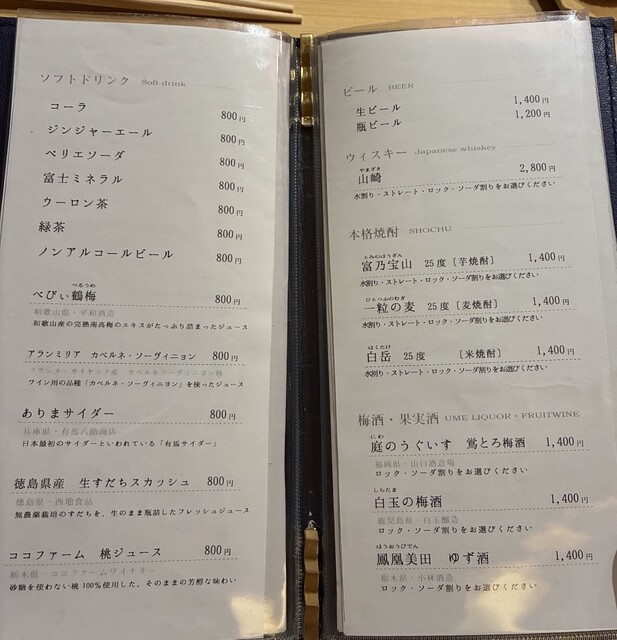 ソフトドリンク Soft drink
コーラ 800円
ジンジャーエール 800円
ペリエソーダ 800円
富士ミネラル 800円
ウーロン茶 800円
緑茶 800円
ノンアルコールビール 800円
つるうめ
べびぃ鶴梅 800円
和歌山県・平和酒造
和歌山産の完熟南高梅のエキスがたっぷり詰まったジュース
アランミリア カベルネ・ソーヴィニョン 800円
フランス・ガイヤック産 カベルネソーヴィニヨン種
ワイン用の品種「カベルネ・ソーヴィニヨン」を使ったジュース
ありまサイダー 800円
兵庫県・有馬八助商店
日本最初のサイダーといわれている「有馬サイダー」
徳島県産 生すだちスカッシュ 800円
徳島県・西地食品
無農薬栽培のすだちを、生のまま瓶詰したフレッシュジュース
ココファーム 桃ジュース 800円
栃木県・ココファームワイナリー
砂糖を使わない桃100%使用した、そのままの芳醇な味わい
ビール BEER
生ビール 1,400円
瓶ビール 1,200円
ウィスキー Japanese whiskey
やまざき
山崎 2,800円
水割り・ストレート・ロック・ソーダ割りをお選びください
本格焼酎 SHOCHU
とみのほうざん
富乃宝山 25度〔芋焼酎〕 1,400円
水割り・ストレート・ロック・ソーダ割りをお選びください
ひとつぶのむぎ
一粒の麦 25度〔麦焼酎〕 1,400円
水割り・ストレート・ロック・ソーダ割りをお選びください
はくたけ
白岳 25度 〔米焼酎〕 1,400円
水割り・ストレート・ロック・ソーダ割りをお選びください
梅酒・果実酒 UME LIQUOR・FRUITWINE
にわ
庭のうぐいす 鴬とろ梅酒 1,400円
福岡県・山口酒造場
ロック・ソーダ割りをお選びください
しらたま
白玉の梅酒 1,400円
鹿児島県・白玉醸造
ロック・ソーダ割りをお選びください
ほうおうびでん
鳳凰美田 ゆず酒 1,400円
栃木県・小林酒造
ロック・ソーダ割りをお選びください